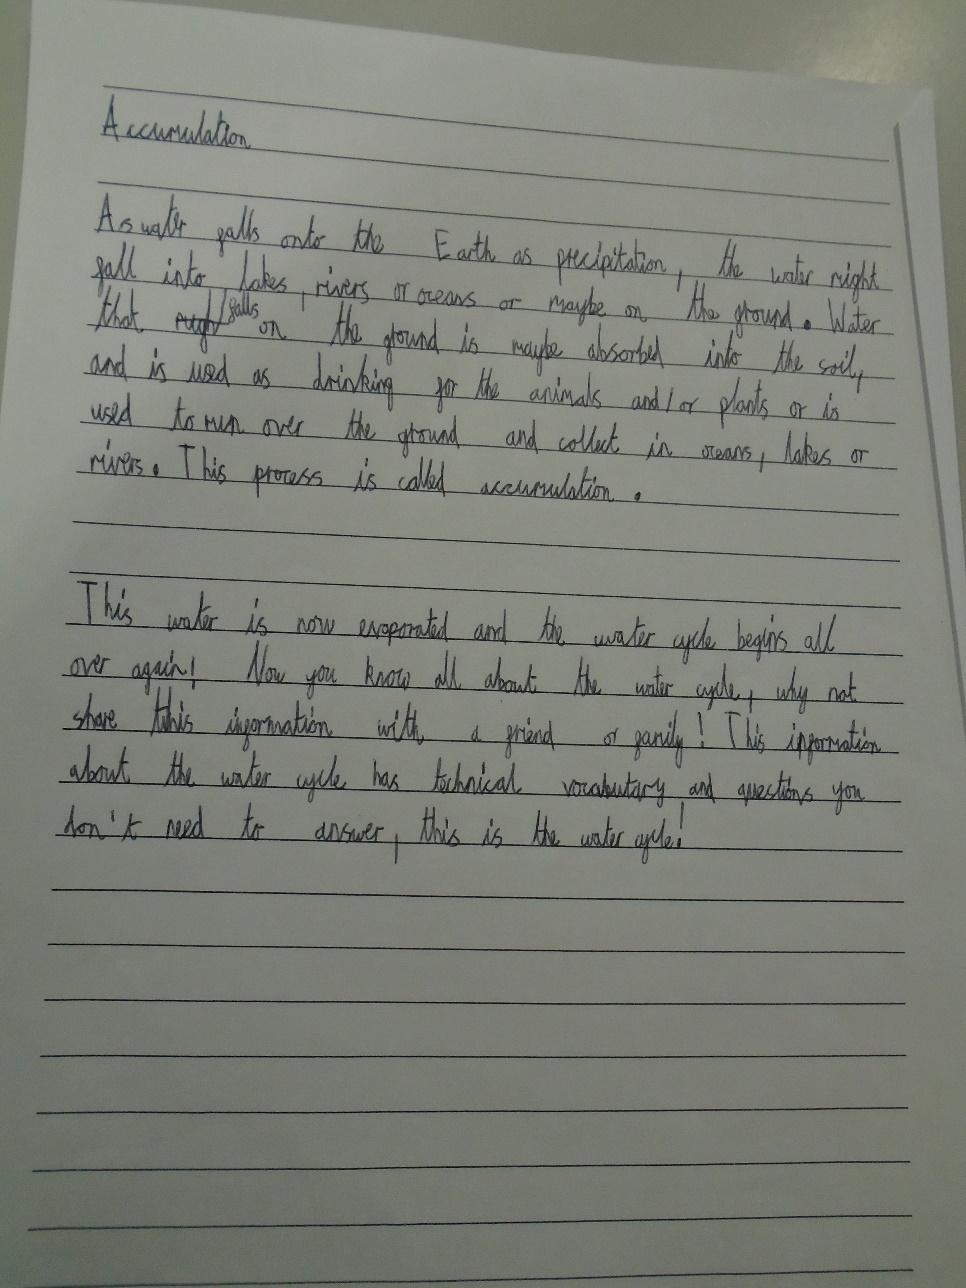 Accumulation
As water falls onto the Earth as precipitation, the water might
fall into lakes, rivers or oceans or maybe on the ground. Water
that falls on the ground is maybe absorbed into the soil,
and is used as drinking for the animals and/or plants or is
used to run over the ground and collect in oceans, lakes or
rivers. This process is called accumulation.
This water is now evaporated and the water cycle begins all
over again! Now you know all about the water cycle, why not
share this information with a friend or family! This information
about the water cycle has technical vocabulary and questions you
don't need to answer, this is the water cycle!